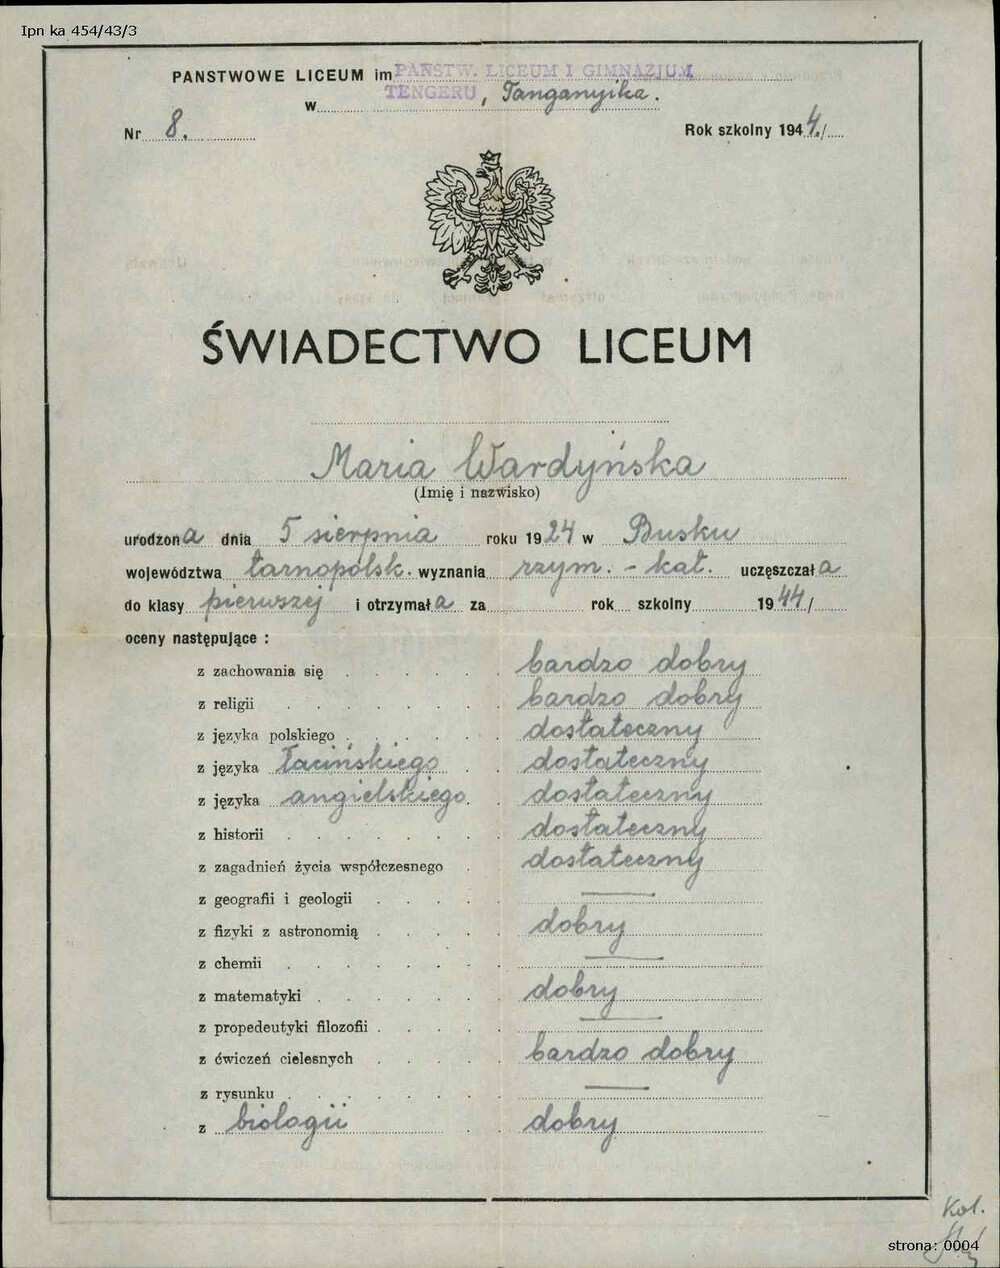 Ipn ka 454/43/3
PANSTWOWE LICEUM im PAŃSTW. LICEUM I GIMNAZJUM
w TENGERU, Tanganyika.
Nr 8. Rok szkolny 1944/
ŚWIADECTWO LICEUM
Maria Wardyńska
(Imię i nazwisko)
urodzona dnia 5 sierpnia roku 1924 w Busku
województwa tarnopolsk. wyznania rzym. - kat. uczęszczała
do klasy pierwszej i otrzymała za rok szkolny 1944/
oceny następujące :
z zachowania się bardzo dobry
z religii bardzo dobry
z języka polskiego dostateczny
z języka łacińskiego dostateczny
z języka angielskiego dostateczny
z historii dostateczny
z zagadnień życia współczesnego dostateczny
z geografii i geologii —
z fizyki z astronomią dobry
z chemii —
z matematyki dobry
z propedeutyki filozofii —
z ćwiczeń cielesnych bardzo dobry
z rysunku —
z biologii dobry
Kol.
strona: 0004